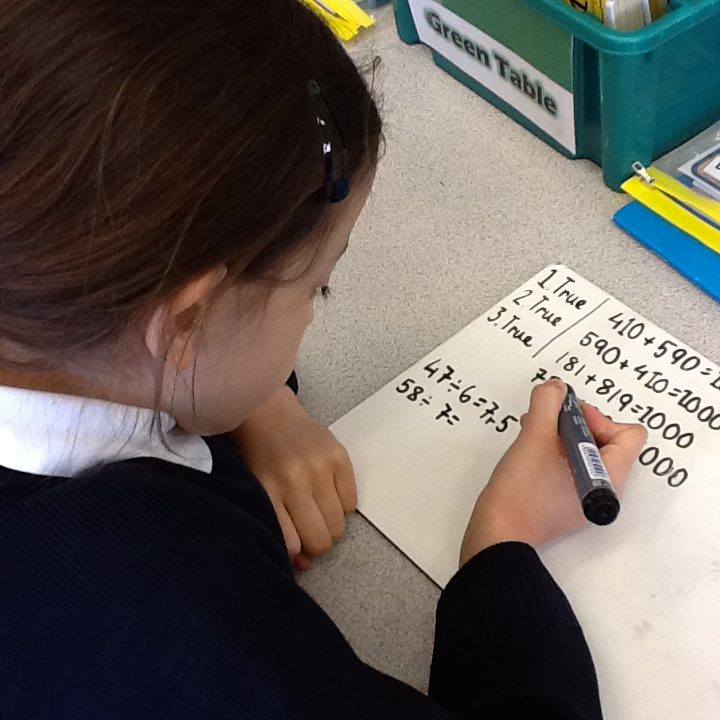 Green Table
1. True
2. True
3. True
410+590=1
590+410=1000
181+819=1000
000
47÷6=7r5
58÷7=